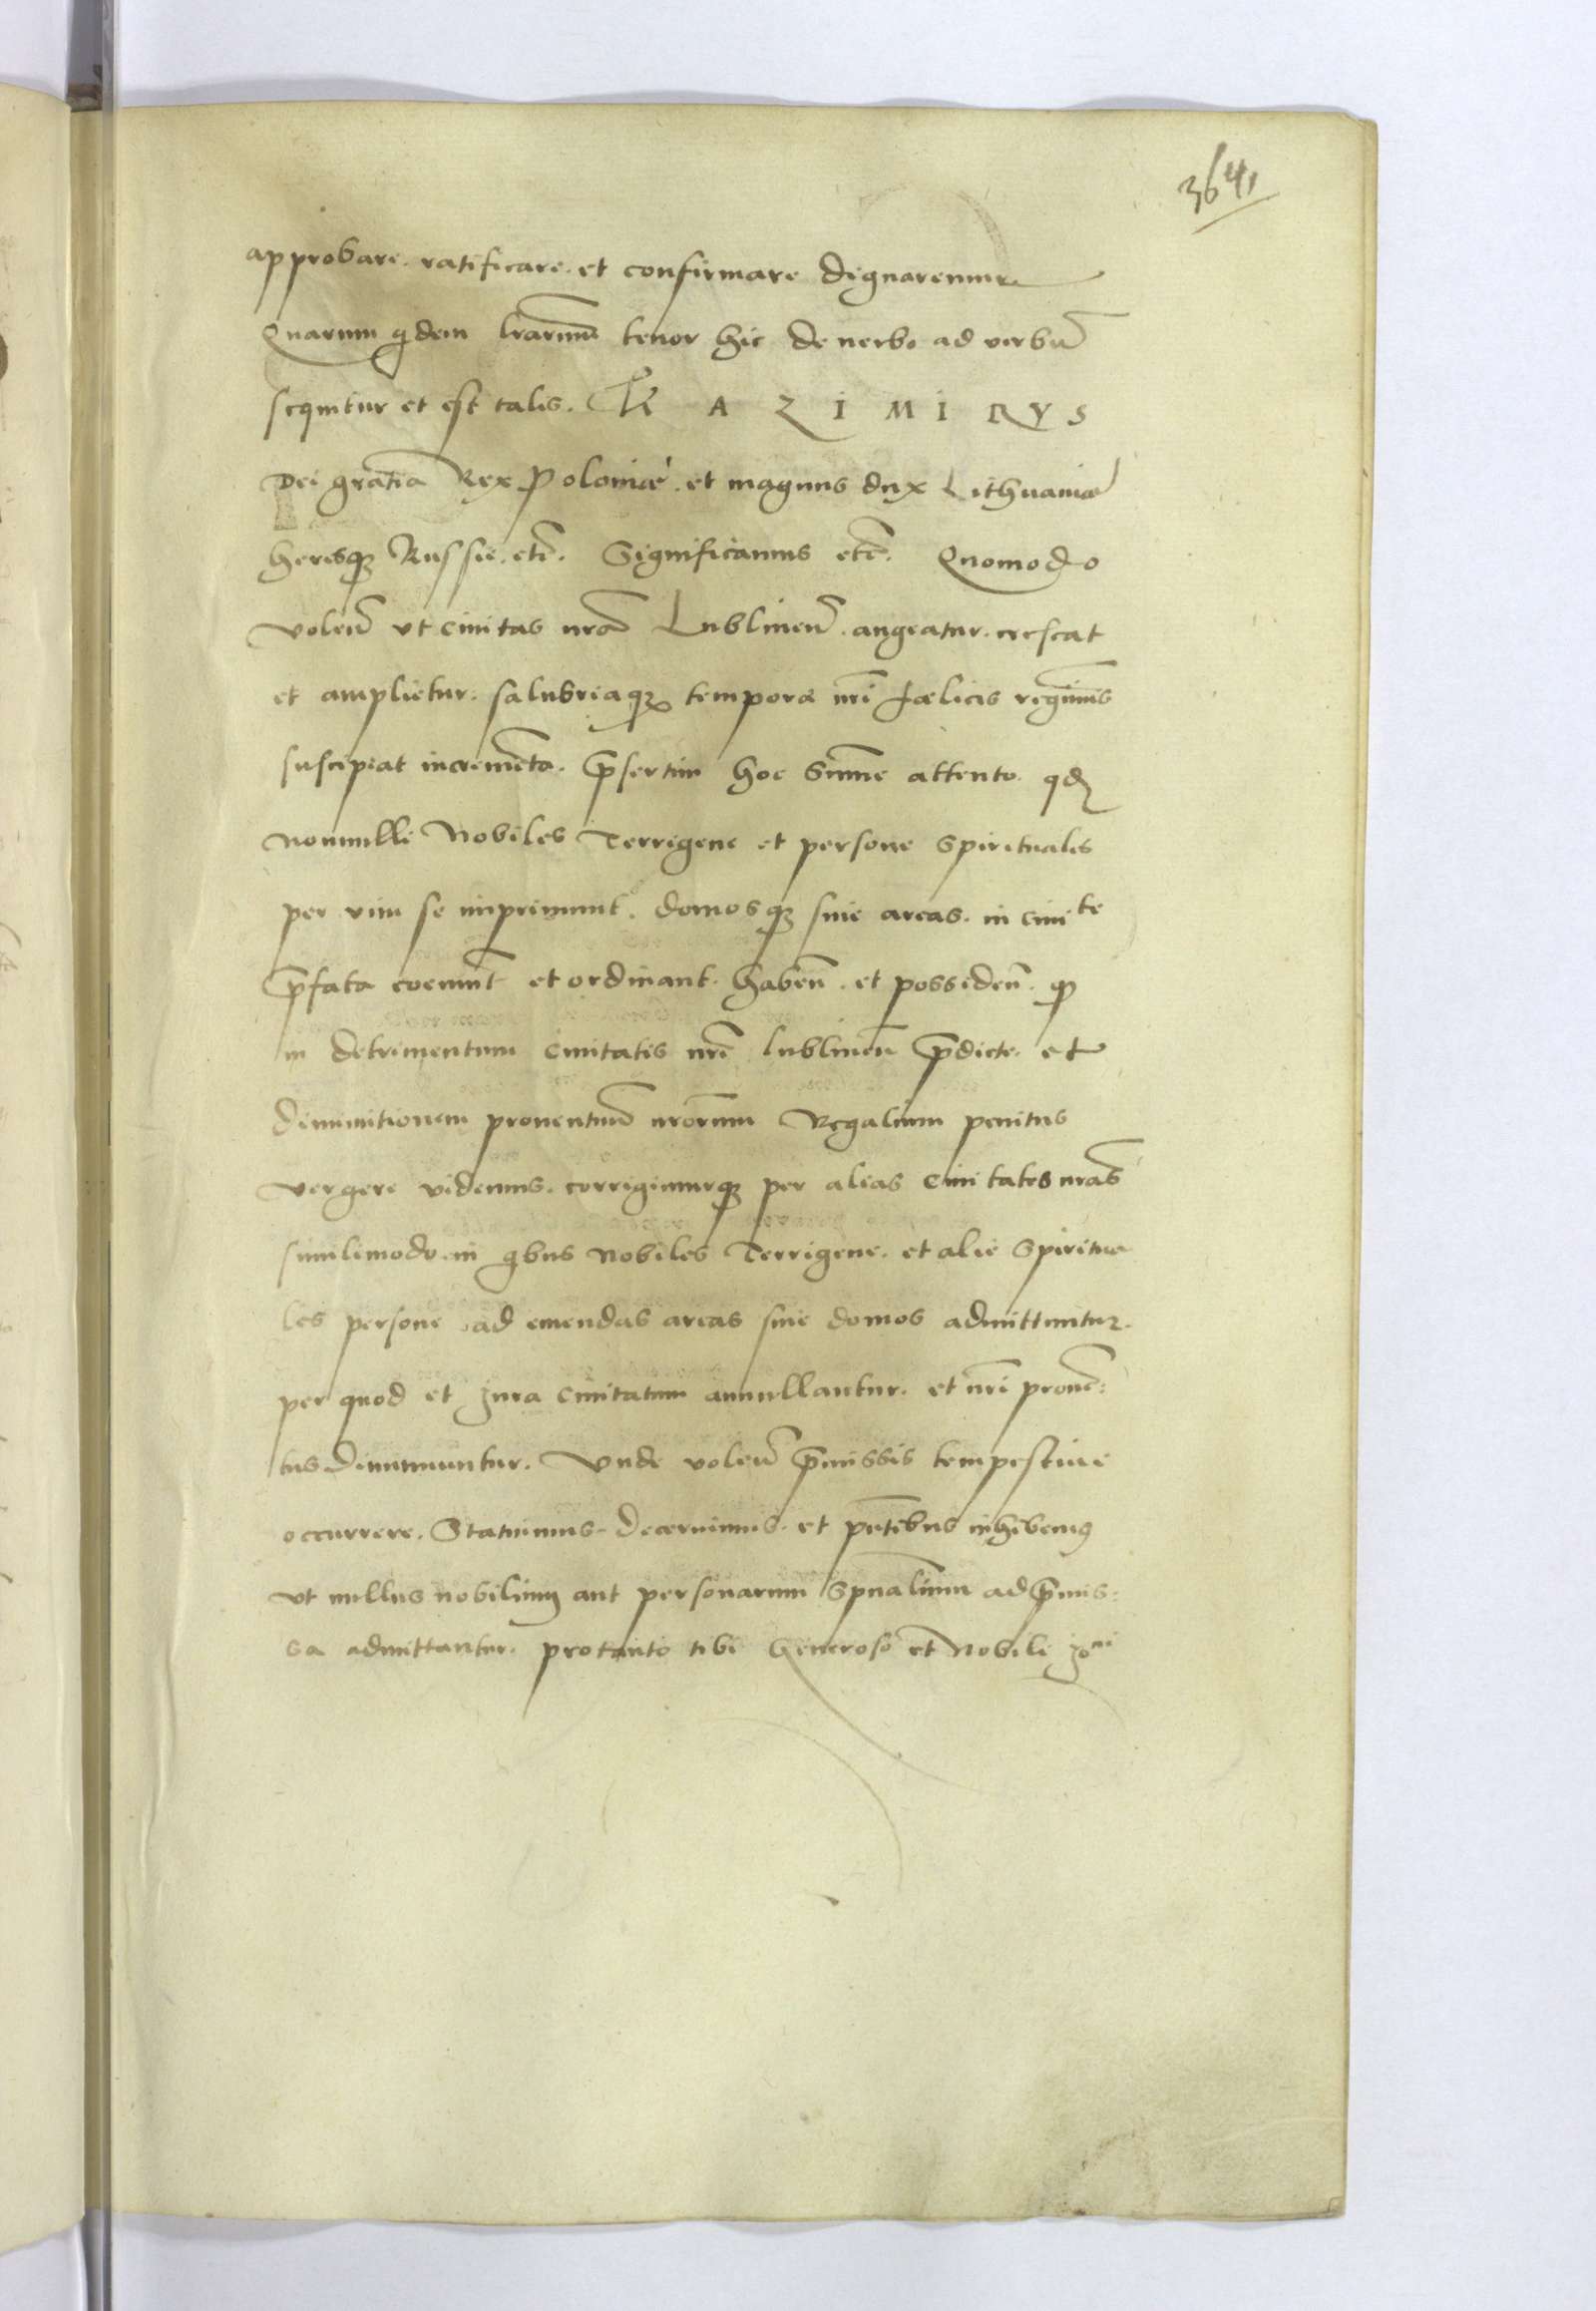 3641
approbare. ratificare. et confirmare dignaremur
Quarum qdem lrarum tenor hic de verbo ad verbū
sequitur et est talis. K A Z I M I R V S
Dei gratia Rex Poloniæ. et magnus dux Lithuaniæ
heresq Russie. etc̄. Significamus etc̄. Quomodo
volen̄ vt ciuitas nrā Lublinen̄. augeatur. crescat
et amplietur. salubriaq tempora nrī fœlicis regiminis
suscipiat incremēta. p̄sertim hoc Summe attento. qd
nonnulli Nobiles Terrigene et persone Spirituales
per vim se imprimunt. domosq siue areas. in ciuite
p̄fata coemunt et ordinant. haben̄. et possiden̄. q
in detrimentum Ciuitatis nrē lublinen̄ p̄dicte. et
diminutionem prouentuū nrōrum Regalium penitus
vergere videmus. corrigimurq per alias Ciuitates nrās
similimodo. in qbus Nobiles Terrigene. et alie Spiritua
les persone ad emendas areas siue domos admittuntur.
per quod et Jura Ciuitatum annullantur. et nrī prouē:
tus diminuuntur. Vnde volen̄ p̄missis tempestiue
occurrere. Statuimus. decernimus. et pn̄tibus inhibemus
vt nullus nobilium aut personarum Spūalium ad p̄mis:
sa admittantur. protanto tibi Generoso et Nobili Joni